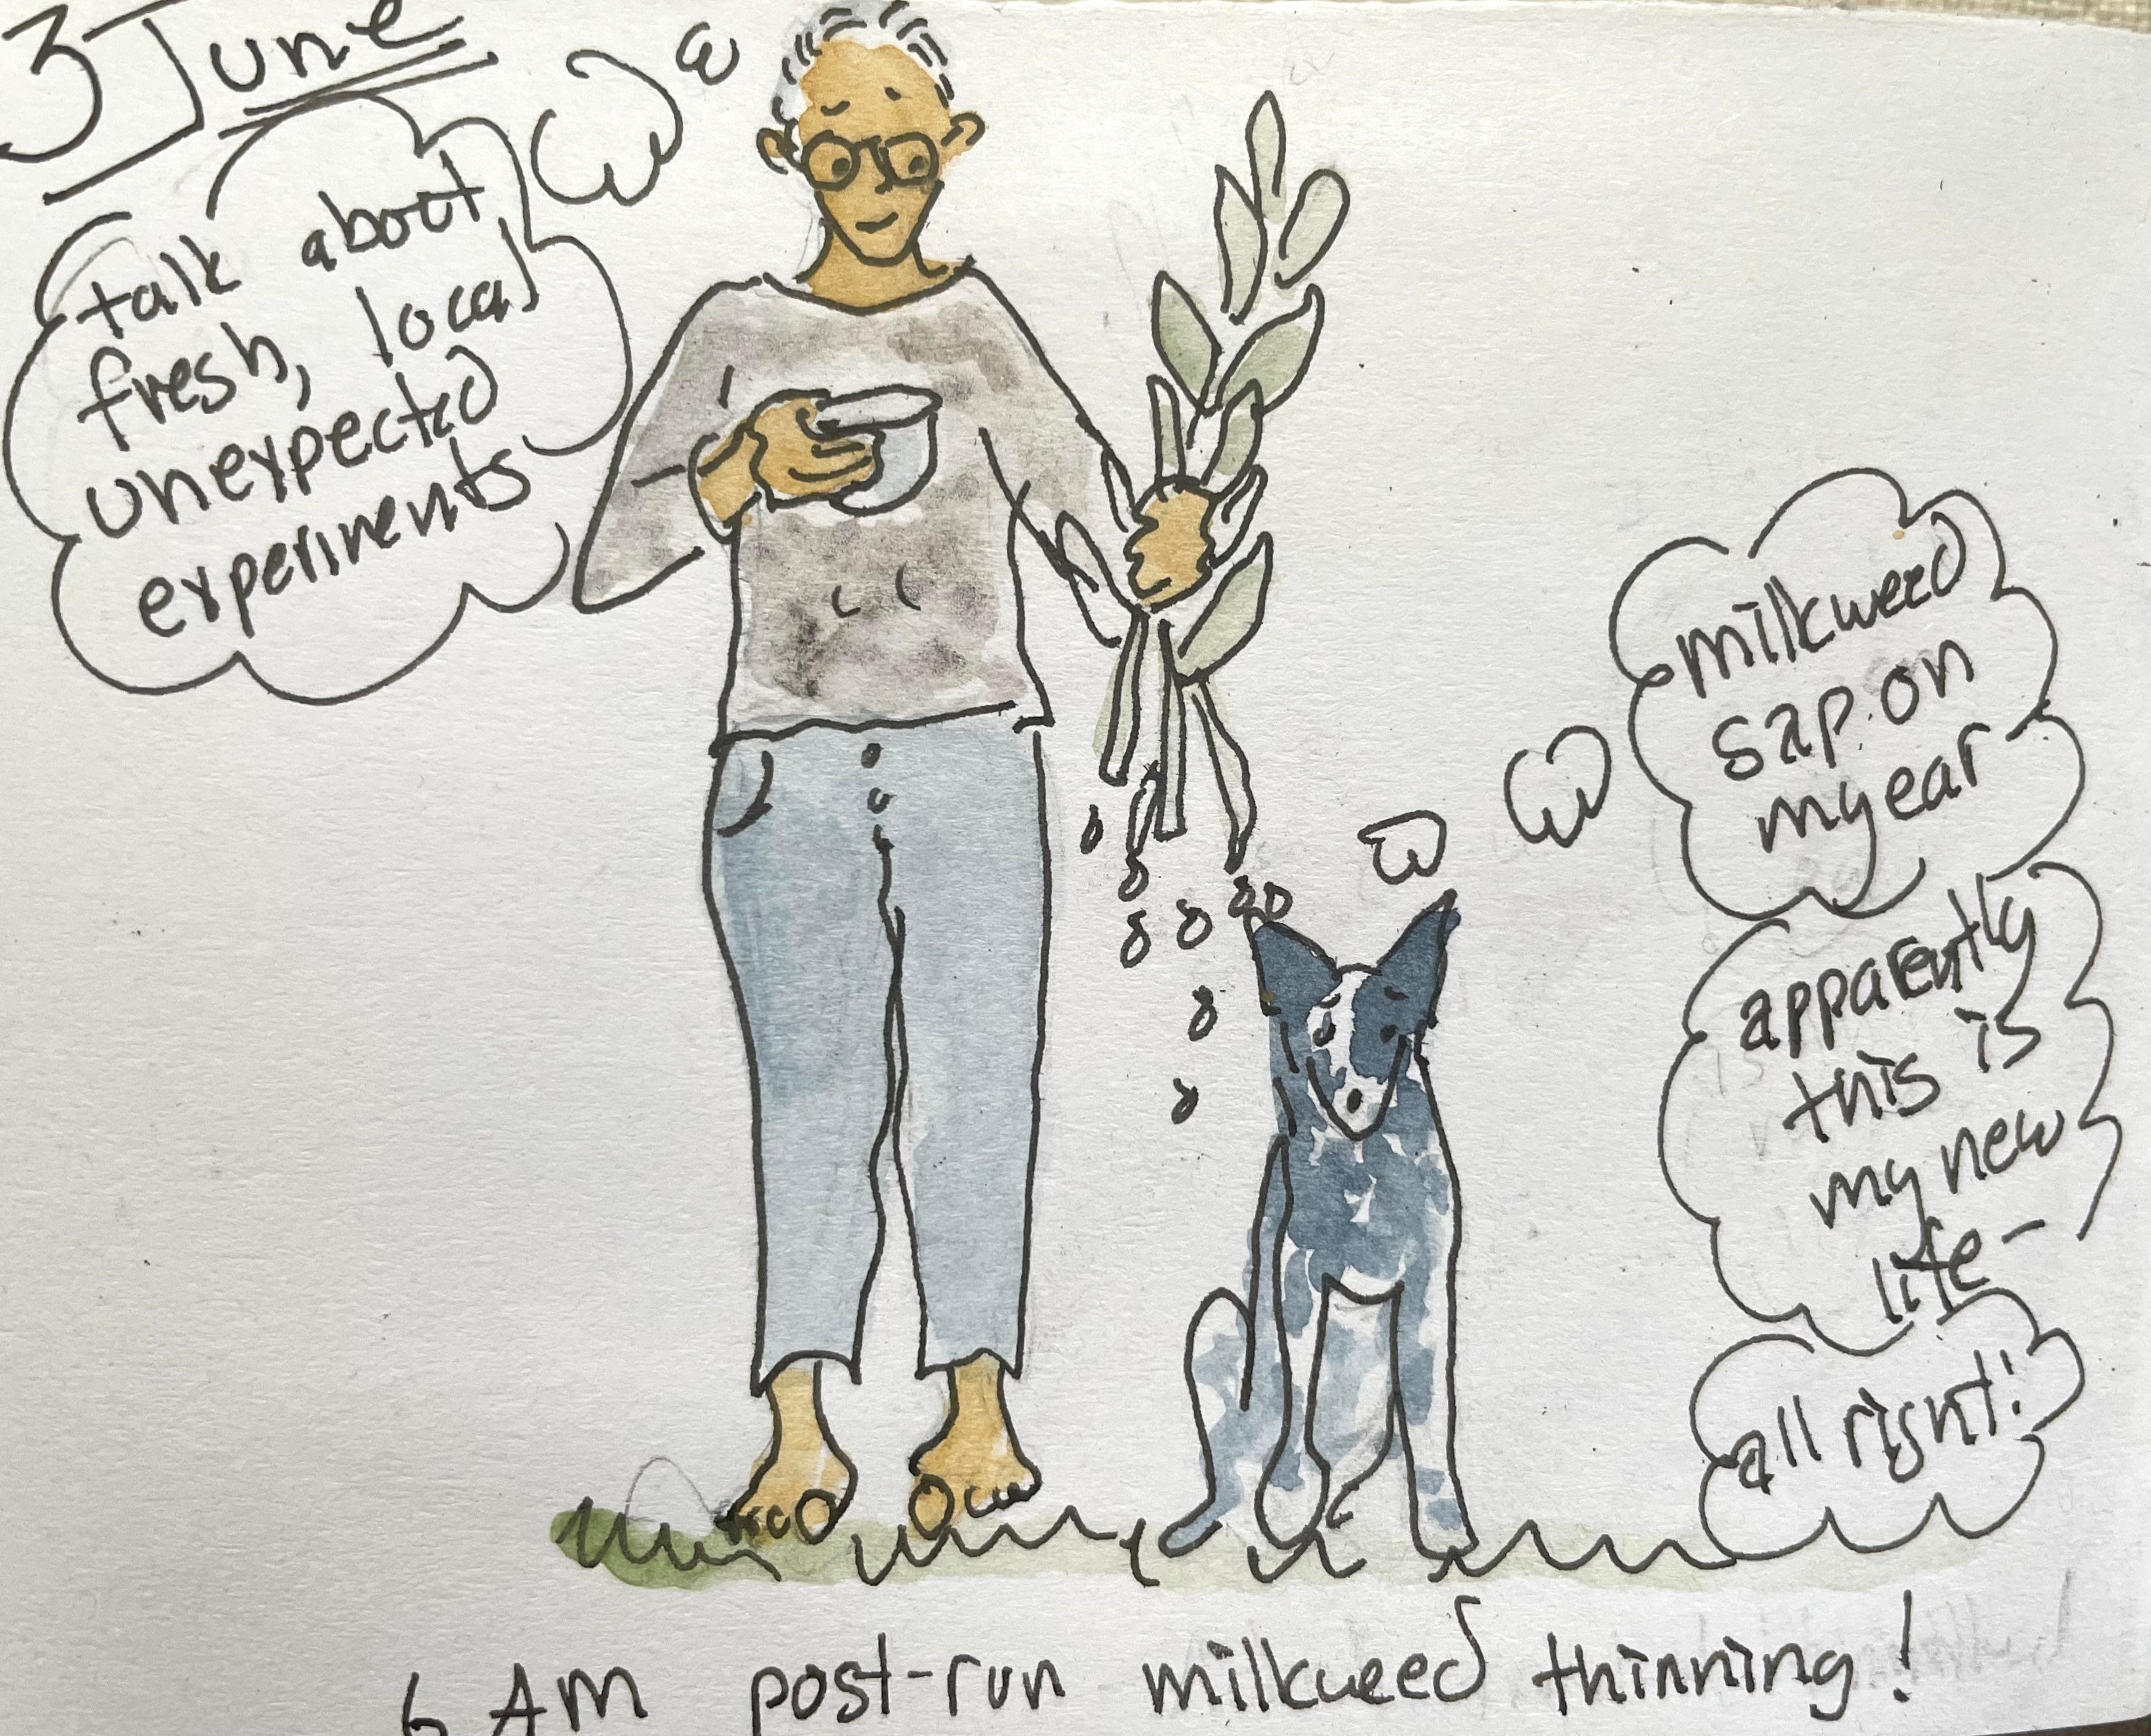 3 June
talk about
fresh, local
unexpected
experiments
milkweed
sap on
my ear
apparently
this is
my new
life—
all right!
6 AM post-run milkweed thinning!